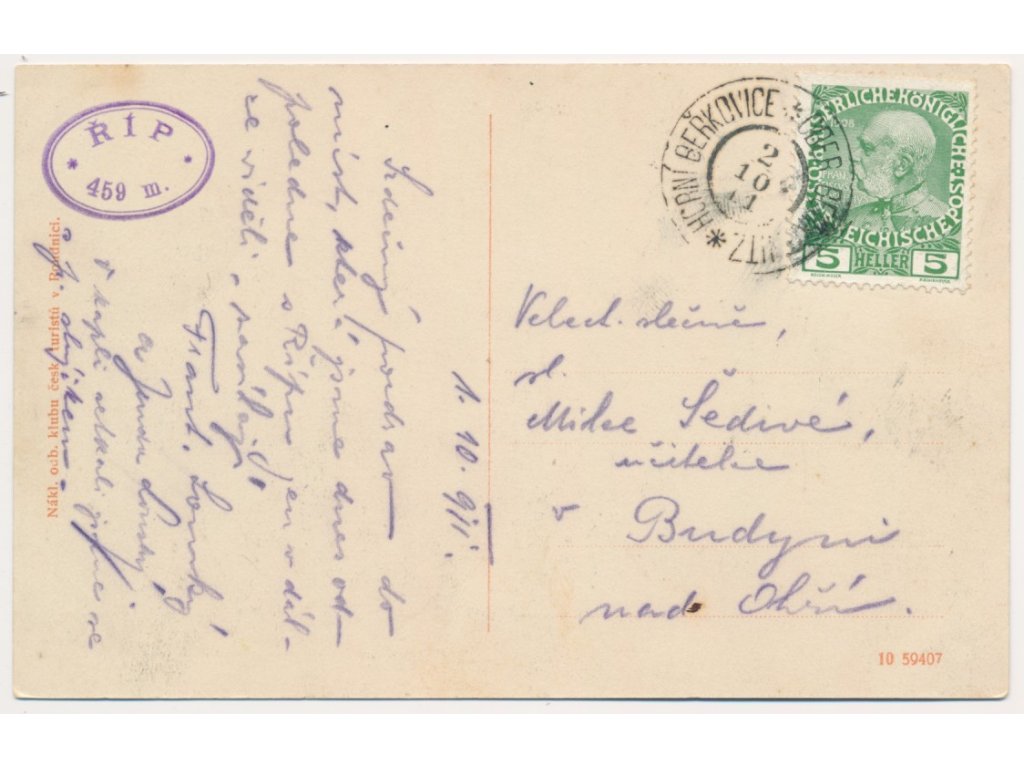 * ŘÍP *
459 m.
Nákl. odb. klubu česk. turistů v Roudnici.
1. 10. 911.
Srdečný pozdrav do
míst, která jsme dnes od-
poledne s Řípu jen v dál-
ce viděli, zasílají
Frant.
a
v kapli setkali jsme se
s
* HORNÍ BEŘKOVICE *
2
10
11
KAISERLICHE KÖNIGLICHE
ÖSTERREICHISCHE POST
1908
5 HELLER 5
Velect. slečně,
sl.
Milce Šedivé,
učitelce
v Budyni
nad Ohří.
10 59407